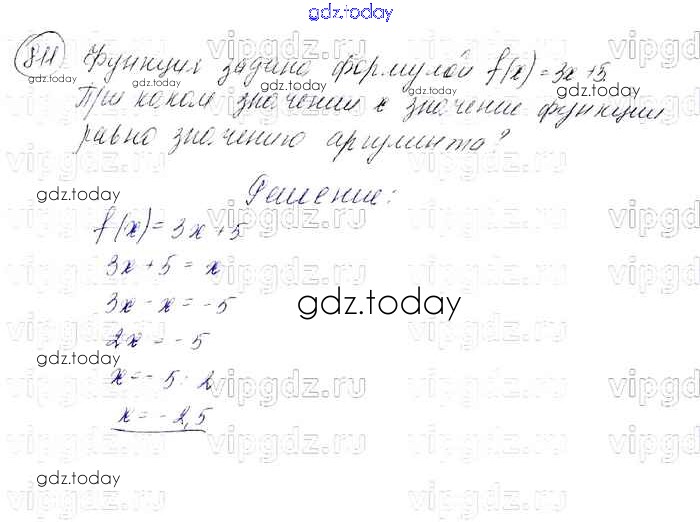 gdz.today
811 Функция задана формулой f(x) = 3x+5.
При каком значении x значение функции
равно значению аргумента?
gdz.today
gdz.today
Решение:
gdz.today
f(x) = 3x + 5
vipgdz.ru
3x + 5 = x
3x - x = -5
gdz.today
2x = -5
gdz.today
x = -5 : 2
vipgdz.ru
x = -2,5
vipgdz.ru
gdz.today
gdz.today